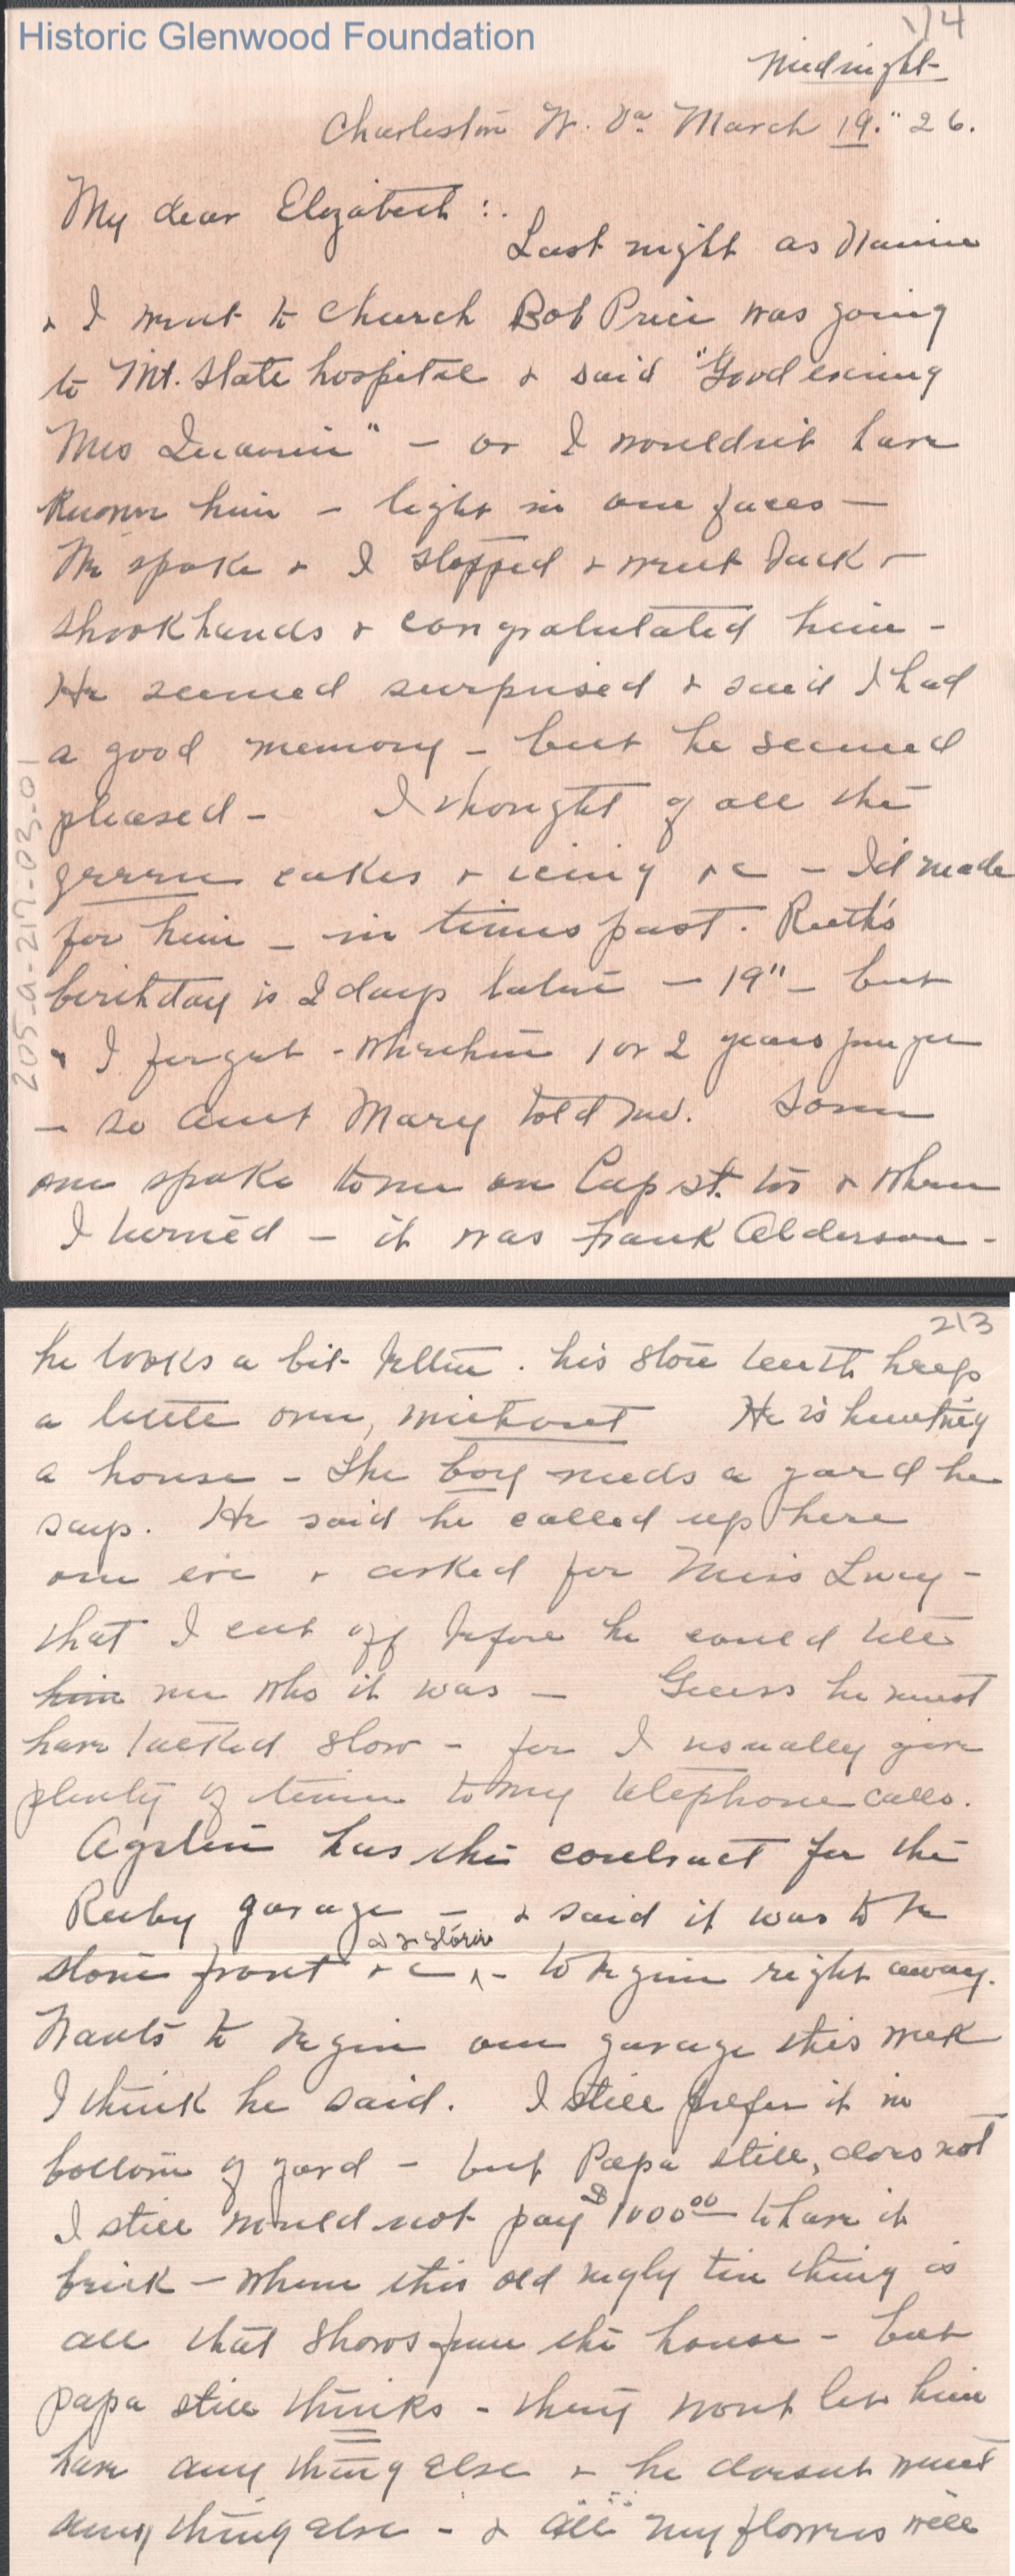 Historic Glenwood Foundation
1/4
Midnight
Charleston W. Va March 19." 26.
My dear Elizabeth :.
Last night as Nannie
& I went to church Bob Price was going
to Mt. State hospital & said "Good evening
Mrs Quarrier" - or I wouldnt have
known him - light in our faces -
We spoke & I stopped & went back &
shook hands & congratulated him -
He seemed surprised & said I had
a good memory - but he seemed
pleased - I thought of all the
green cakes & icing &c - I'd made
for him - in times past. Ruth's
birthday is 2 days later - 19" - but
& I forget - whether 1 or 2 years younger
- so Aunt Mary told me. Some
one spoke to me on Cap st. too & when
I turned - it was Frank Alderson -
205-a-217-03-01
2\3
he looks a bit better. his store teeth help
a little over, without He is hunting
a house - The boy needs a yard he
says. He said he called up here
one eve & asked for Miss Lucy -
that I cut off before he could tell
him me who it was - Guess he must
have talked slow - for I usually give
plenty of time to my telephone calls.
has the contract for the
Ruby garage - & said it was to be
stone front &c - to begin right away.
Wants to begin our garage this week
I think he said. I still prefer it in
bottom of yard - but Papa still, does not
I still would not pay $1000 00 to have it
brick - when this old ugly tin thing is
all that shows from the house - but
papa still thinks - they wont let him
have any thing else & he doesnt want
any thing else - & all my flowers will